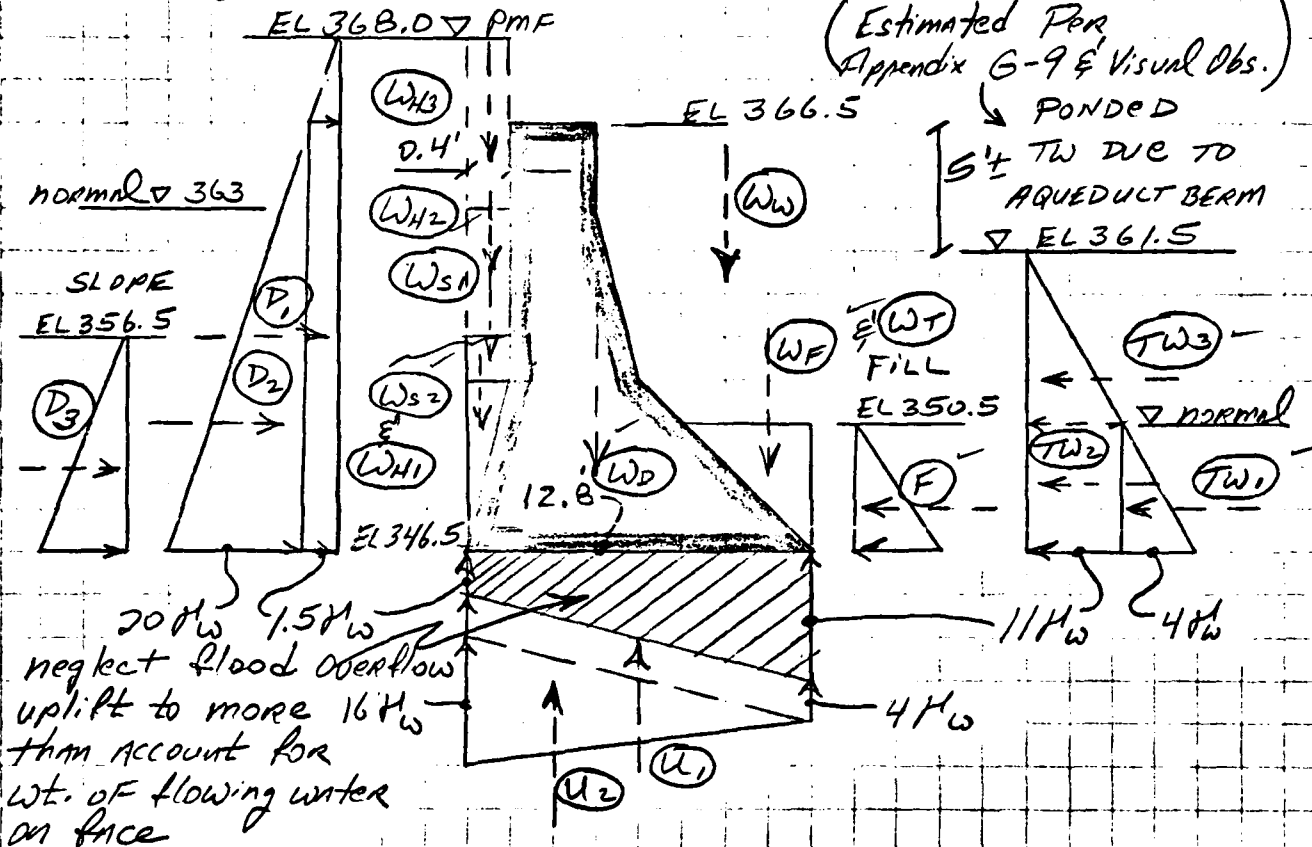 EL 368.0 ▽ PMF
(Estimated Per
Appendix G-9 & Visual Obs.)
WH3
EL 366.5
PONDED
0.4'
5'± TW DUE TO
AQUEDULT BERM
normal ▽ 363
WH2
WW
▽ EL 361.5
SLOPE
WS1
EL 356.5
D1
WF & WT
FILL
TW3
D2
WS2
&
WH1
EL 350.5
▽ normal
D3
TW2
TW1
WD
F
12.8'
EL 346.5
20 γw
1.5 γw
11 γw
4 γw
neglect flood overflow
uplift to more
than account for
wt. of flowing water
on face
16 γw
4 γw
U1
U2